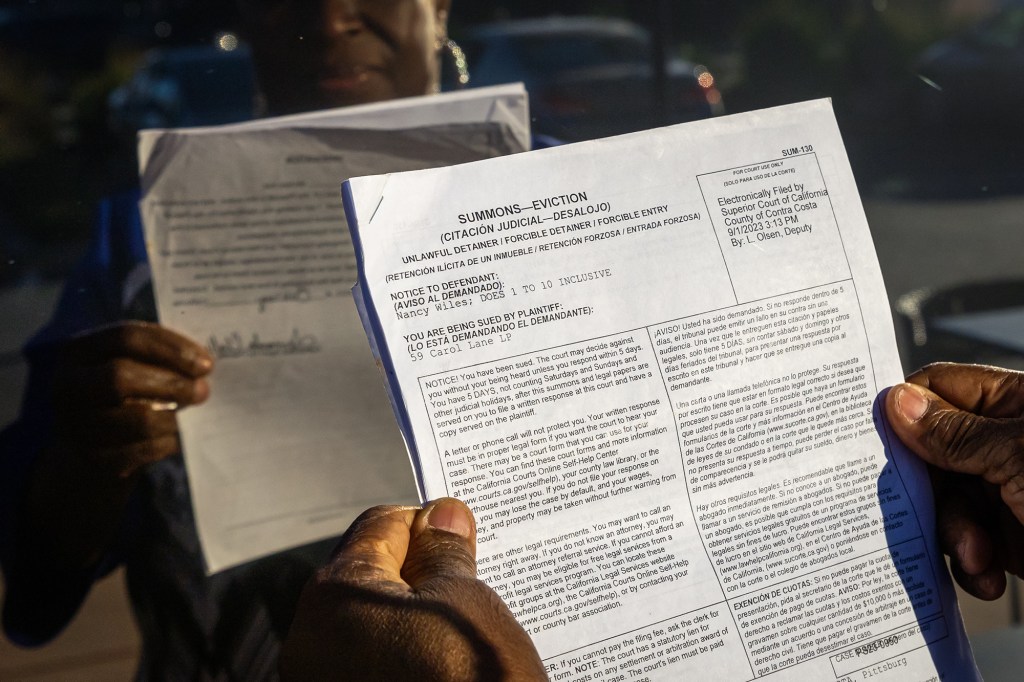 SUM-130
FOR COURT USE ONLY
(SOLO PARA USO DE LA CORTE)
Electronically Filed by
Superior Court of California
County of Contra Costa
9/1/2023 3:13 PM
By: L. Olsen, Deputy
SUMMONS—EVICTION
(CITACIÓN JUDICIAL—DESALOJO)
UNLAWFUL DETAINER / FORCIBLE DETAINER / FORCIBLE ENTRY
(RETENCIÓN ILÍCITA DE UN INMUEBLE / RETENCIÓN FORZOSA / ENTRADA FORZOSA)
NOTICE TO DEFENDANT:
(AVISO AL DEMANDADO):
Nancy Wiles; DOES 1 TO 10 INCLUSIVE
YOU ARE BEING SUED BY PLAINTIFF:
(LO ESTÁ DEMANDANDO EL DEMANDANTE):
59 Carol Lane LP
NOTICE! You have been sued. The court may decide against
you without your being heard unless you respond within 5 days.
You have 5 DAYS, not counting Saturdays and Sundays and
other judicial holidays, after this summons and legal papers are
served on you to file a written response at this court and have a
copy served on the plaintiff.
A letter or phone call will not protect you. Your written response
must be in proper legal form if you want the court to hear your
case. There may be a court form that you can use for your
response. You can find these court forms and more information
at the California Courts Online Self-Help Center
www.courts.ca.gov/selfhelp), your county law library, or the
thouse nearest you. If you do not file your response on
you may lose the case by default, and your wages,
y, and property may be taken without further warning from
court.
ere are other legal requirements. You may want to call an
torney right away. If you do not know an attorney, you may
nt to call an attorney referral service. If you cannot afford an
ney, you may be eligible for free legal services from a
fit legal services program. You can locate these
fit groups at the California Legal Services website
whelpca.org), the California Courts Online Self-Help
.courts.ca.gov/selfhelp), or by contacting your
t or county bar association.
ER: If you cannot pay the filing fee, ask the clerk for
form. NOTE: The court has a statutory lien for
costs on any settlement or arbitration award of
case. The court's lien must be paid
¡AVISO! Usted ha sido demandado. Si no responde dentro de 5
días, el tribunal puede emitir un fallo en su contra sin una
audiencia. Una vez que le entreguen esta citación y papeles
legales, solo tiene 5 DÍAS, sin contar sábado y domingo y otros
días feriados del tribunal, para presentar una respuesta por
escrito en este tribunal y hacer que se entregue una copia al
demandante.
Una carta o una llamada telefónica no lo protege. Su respuesta
por escrito tiene que estar en formato legal correcto si desea que
procesen su caso en la corte. Es posible que haya un formulario
que usted pueda usar para su respuesta. Puede encontrar estos
formularios de la corte y más información en el Centro de Ayuda
de las Cortes de California (www.sucorte.ca.gov), en la biblioteca
de leyes de su condado o en la corte que le quede más cerca. Si
no presenta su respuesta a tiempo, puede perder el caso por falta
de comparecencia y se le podrá quitar su sueldo, dinero y bienes
sin más advertencia.
Hay otros requisitos legales. Es recomendable que llame a un
abogado inmediatamente. Si no conoce a un abogado, puede
llamar a un servicio de remisión a abogados. Si no puede pagar a un
abogado, es posible que cumpla con los requisitos para
obtener servicios legales gratuitos de un programa de servicios
legales sin fines de lucro. Puede encontrar estos grupos sin fines
de lucro en el sitio web de California Legal Services,
(www.lawhelpcalifornia.org), en el Centro de Ayuda de las Cortes
de California, (www.sucorte.ca.gov) o poniéndose en contacto
con la corte o el colegio de abogados local.
EXENCIÓN DE CUOTAS: Si no puede pagar la cuota de
presentación, pida al secretario de la corte que le dé un formulario
de exención de pago de cuotas. AVISO: Por ley, la corte tiene
derecho a reclamar las cuotas y los costos exentos con un
gravamen sobre cualquier cantidad de $10,000 ó más
mediante un acuerdo o una concesión de arbitraje en un caso de
derecho civil. Tiene que pagar el gravamen de la corte antes de
que la corte pueda desestimar el caso.
CASE
TA, Pittsburg